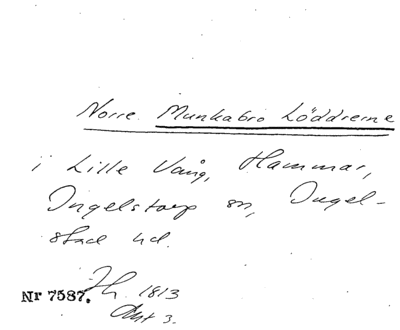 Norre Munkabro Löddrerne
i Lille Vång, Hammar,
Ingelstorp sn, Ingel-
stad hd.
Nr 7587. Jh. 1813
Akt 3.